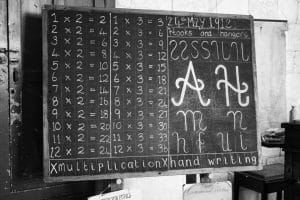 1 x 2 = 2
2 x 2 = 4
3 x 2 = 6
4 x 2 = 8
5 x 2 = 10
6 x 2 = 12
7 x 2 = 14
8 x 2 = 16
9 x 2 = 18
10 x 2 = 20
11 x 2 = 22
12 x 2 = 24
1 x 3 = 3
2 x 3 = 6
3 x 3 = 9
4 x 3 = 12
5 x 3 = 15
6 x 3 = 18
7 x 3 = 21
8 x 3 = 24
9 x 3 = 27
10 x 3 = 30
11 x 3 = 33
12 x 3 = 36
24-May 1912
Hooks and hangers
A H
m n
x multiplication x hand writing